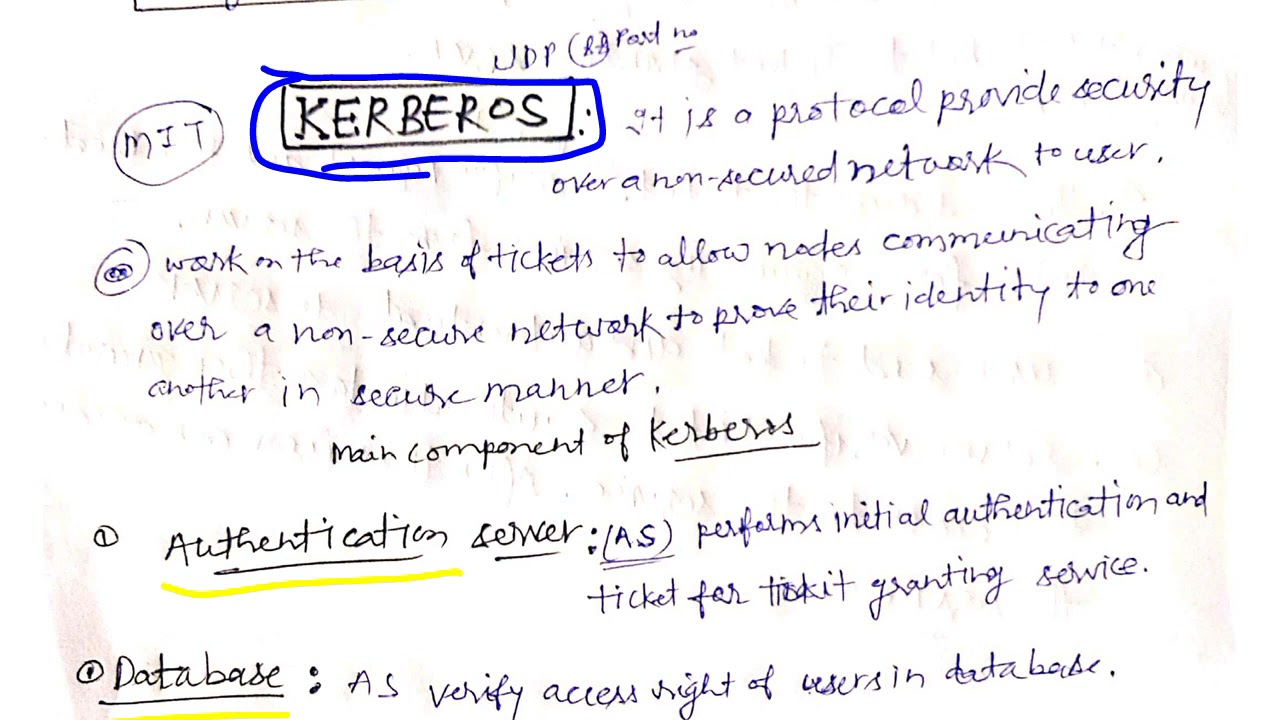 UDP (88) Port no
MIT KERBEROS : It is a protocal provide security
over a non-secured network to user.
work on the basis of tickets to allow nodes communicating
over a non-secure network to prove their identity to one
another in secure manner.
main component of Kerberos
① Authentication server : (AS) performs initial authentication and
ticket for tickit granting service.
Database : AS verify access right of users in database.